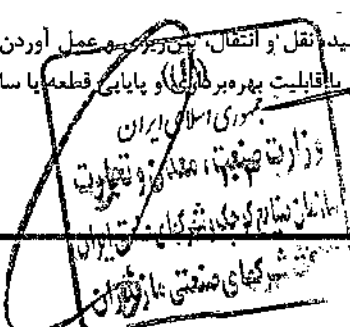 نقل و انتقال، بتن‌ریزی و عمل آوردن
با قابلیت بهره‌برداری و پایایی قطعه یا سا
جمهوری اسلامی ایران
وزارت صنعت، معدن و تجارت
سازمان صنایع کوچک و شهرکهای صنعتی ایران
شرکت شهرکهای صنعتی مازندران